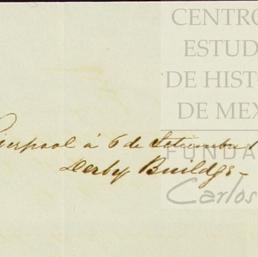 CENTRO
ESTUD
DE HIST
DE MEX
FUNDA
Carlos
Liverpool á 6 de Setiembre 1
Derby Buildgs-